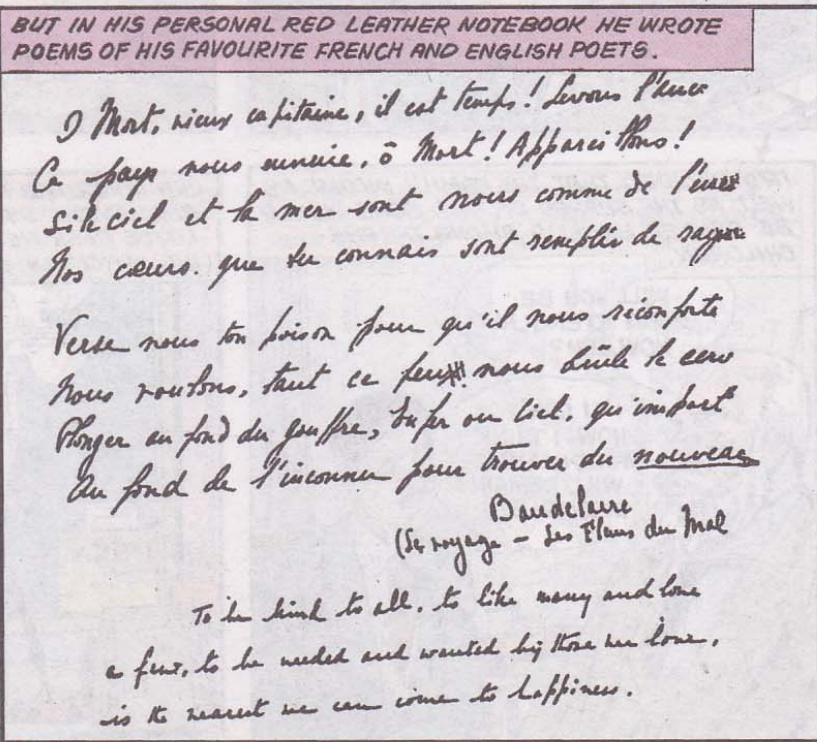 BUT IN HIS PERSONAL RED LEATHER NOTEBOOK HE WROTE
POEMS OF HIS FAVOURITE FRENCH AND ENGLISH POETS.
O Mort, vieux capitaine, il est temps! Levons l'ancr
Ce pays nous ennuie, ô Mort! Appareillons!
Si le ciel et la mer sont noirs comme de l'encr
Nos cœurs que tu connais sont remplis de rayon
Verse nous ton poison pour qu'il nous réconforte
Nous voulons, tant ce feu nous brûle le cerv
Plonger au fond du gouffre, Enfer ou Ciel, qu'import
Au fond de l'inconnu pour trouver du nouveau
Baudelaire
(Le voyage - Les Fleurs du Mal
To be kind to all, to like many and love
a few, to be needed and wanted by those we love,
is the nearest we can come to happiness.